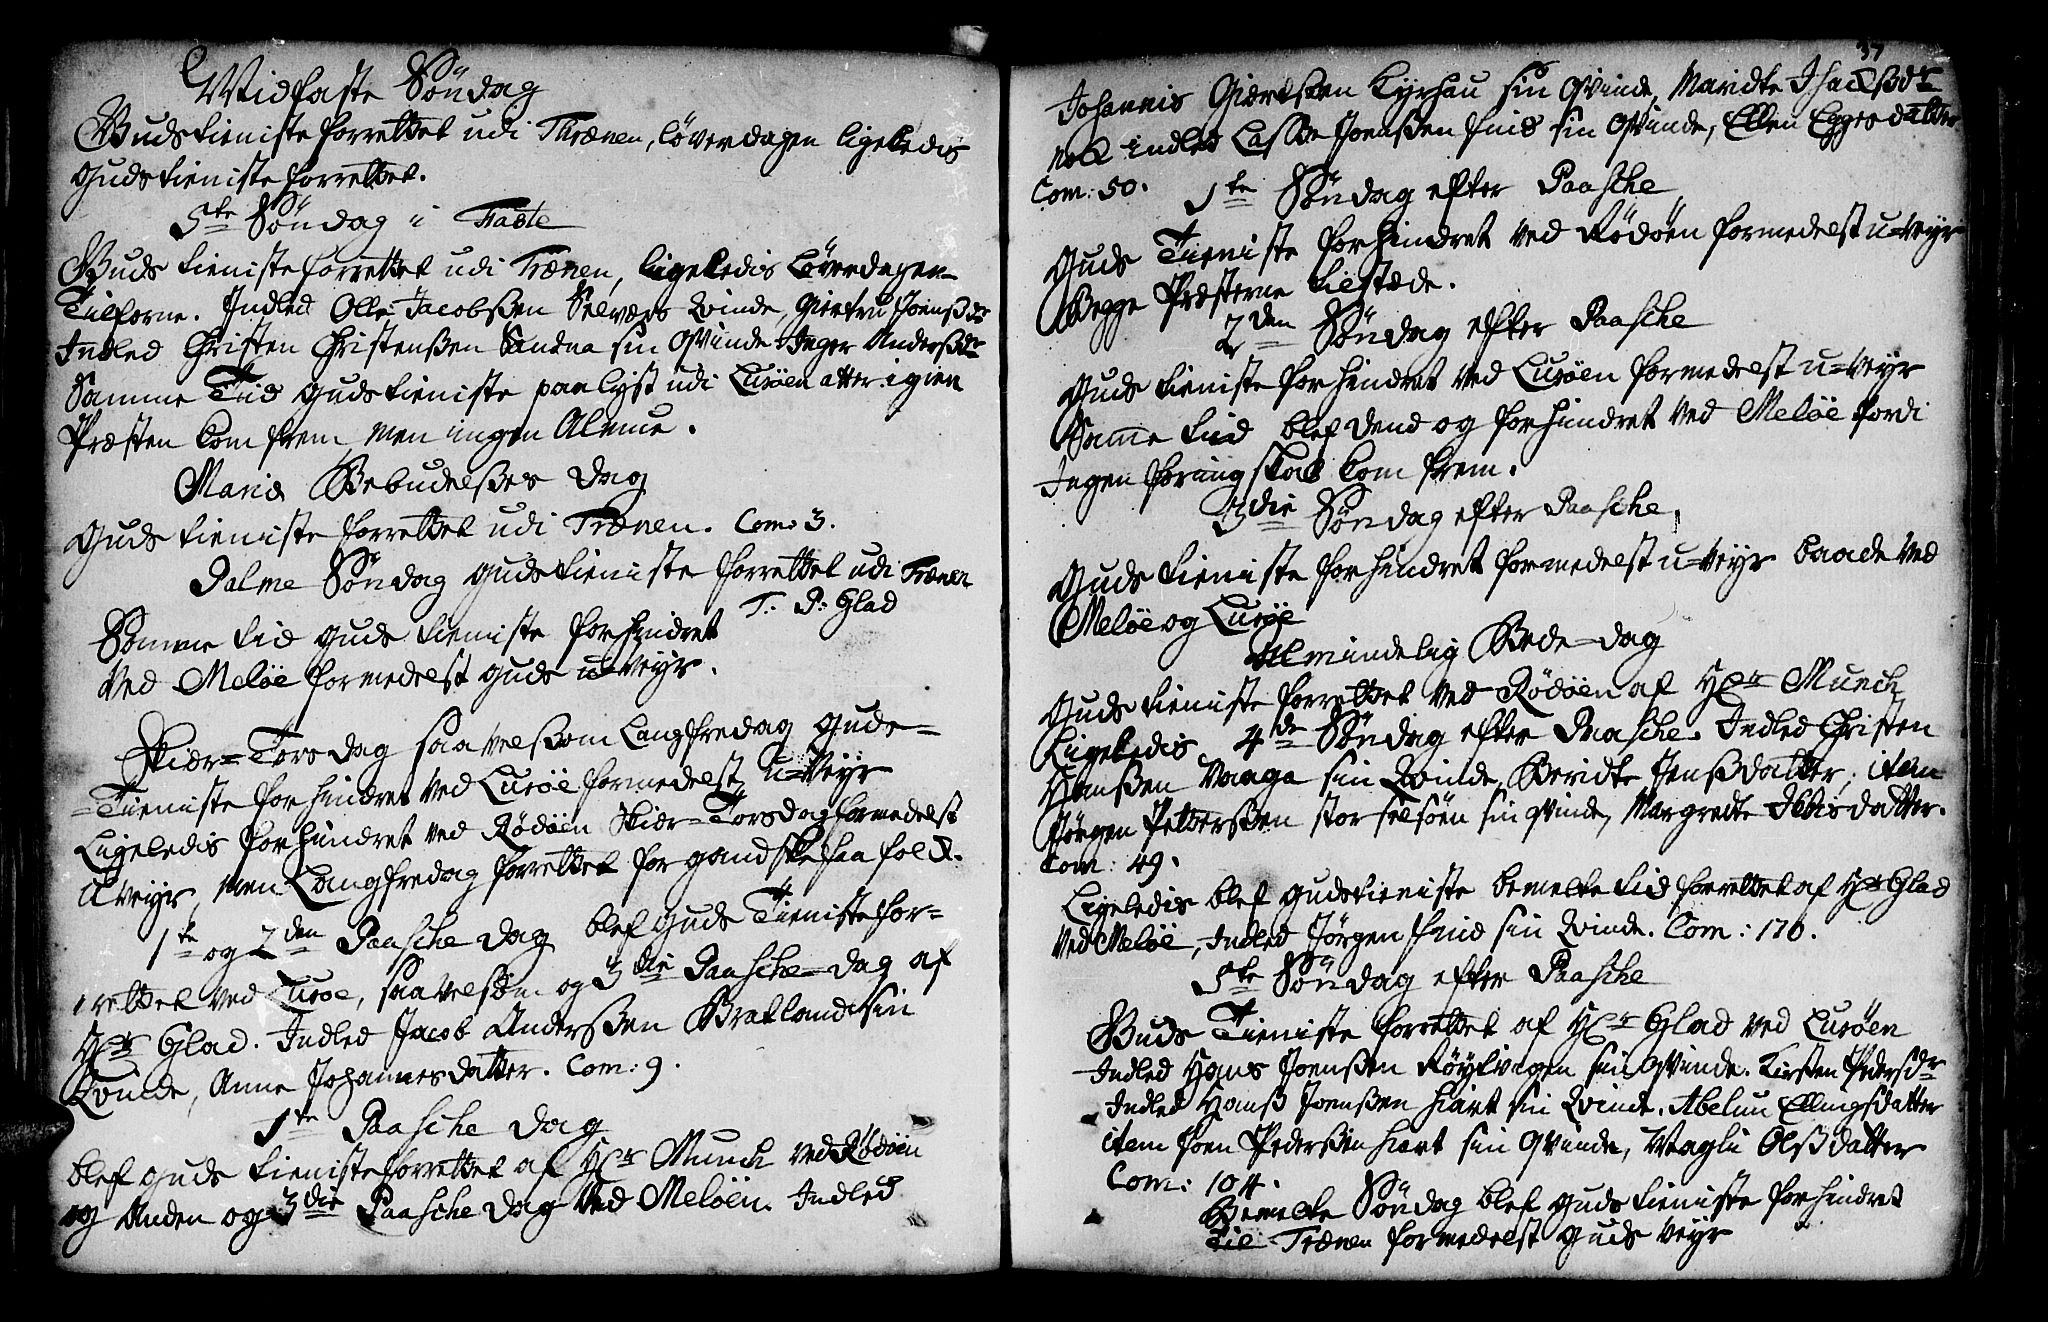 Midfaste Söndag
Guds tieniste forrettet udi Thrænen, löverdagen ligeledis
Guds tieniste forrettet.
5te Söndag i Faste
Guds tieniste forrettet udi Trænen, ligeledis Löverdagen
Tilforne. Indled Olle Jacobsßen Selvær Qvinde, Giertru Joensdr
Indled Christen Christenßen Sandna sin Qvinde Inger Andersdr
Samme Tid Guds tieniste paa lyst udi Luröen atter igien
Præsten kom frem men ingen Almue.
Mariæ Bebudelßes Dag
Guds tieniste forrettet udi Trænen. Com: 3.
Palme Söndag Guds tieniste forrettet udi Trænen
T: P: Glad
Samme tid Guds tieniste forhindret
ved Melöe formedelst Guds u-veyr.
Skiær=Torsdag saavelsom Langfredag Guds=
=Tieniste forhindret ved Luröe formedelst u=veyr
Ligeledis forhindret ved Rödöen Skiær=Torsdag formedelst
Uveyr, men Langfredag forrettet for gandske faa folck.
1te og 2den Paasche Dag blef Guds Tieniste for=
rettet ved Luröe, saavelsom og 3die Paasche=dag af
Hr Glad. Indled Jacob Anderßen Bratland sin
Qvinde, Anne Johannesdatter. Com: 9.
1te Paasche Dag
blef Guds tieniste forrettet af Hr Munch ved Rödöen
og Anden og 3die Paasche Dag ved Melöen. Indled
37
Johannis Giertsßen Kyrhau sin Qvinde, Maridte Isachsdr
nock indled Lasse Joenßen sin Qvinde, Ellen Eggesdatter
Com: 50.
1te Söndag efter Paasche
Guds Tieniste forhindret ved Rödöen formedelst u=veyr
Begge Præsterne tilstæde.
2den Söndag efter Paasche
Guds tieniste forhindret ved Luröen formedelst u=veyr
Samme tid blef dend og forhindret ved Melöe fordi
Ingen föringskab kom frem.
3die Söndag efter Paasche.
Guds tieniste forhindret formedelst u=veyr baade ved
Melöe og Luröe
Almindelig Bede=dag
Guds tieniste forrettet ved Rödöen af Hr Munch
Ligeledis 4de Söndag efter Paasche. Indled Christen
Hansßen Vaaga sin Qvinde, Beridte Jensdatter, item
Jörgen Petterßen stor selsöen sin Qvinde, Margredte Ibbisdatter.
Com: 49.
Ligeledis blef Guds tieniste bemelte tid forrettet af Hr Glad
ved Melöe, Indled Jörgen find sin Qvinde. Com: 170.
5te Söndag efter Paasche
Guds Tieniste forrettet af Hr Glad ved Luröen
Indled Hans Joenßen Röyßvigen sin Qvinde. Kirsten Pedersdr
Indled Hanß Joenßen hiart sin Qvinde. Abelun Ellingsdatter
item Joen Pederßen hiart sin Qvinde, Maglii Olßdatter
Com: 104.
Bemelte Söndag blef Guds tieniste forhindret
til Trænen formedelst Guds veyr